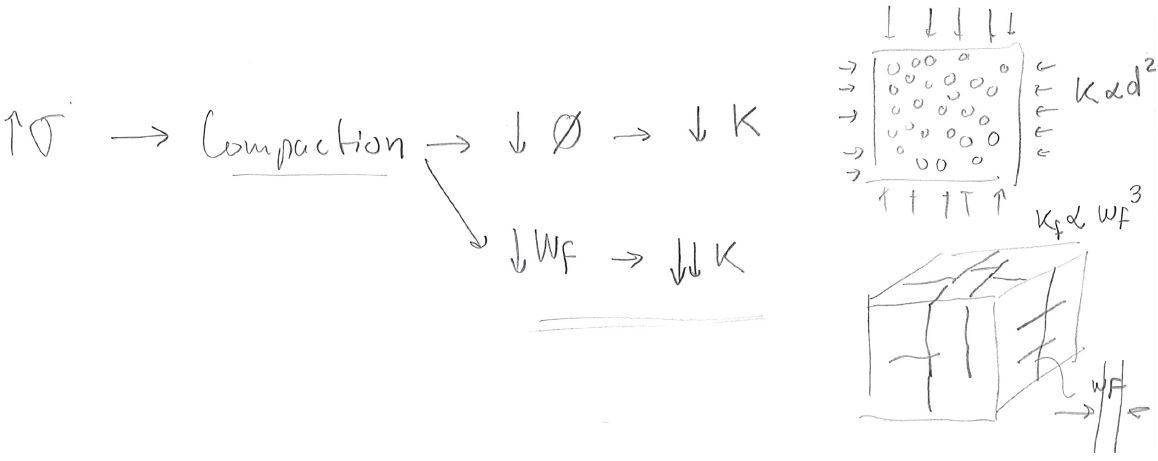 ↑σ → Compaction → ↓ Ø → ↓ K
↓ Wf → ↓↓ K
K ∝ d²
Kf ∝ Wf³
WF